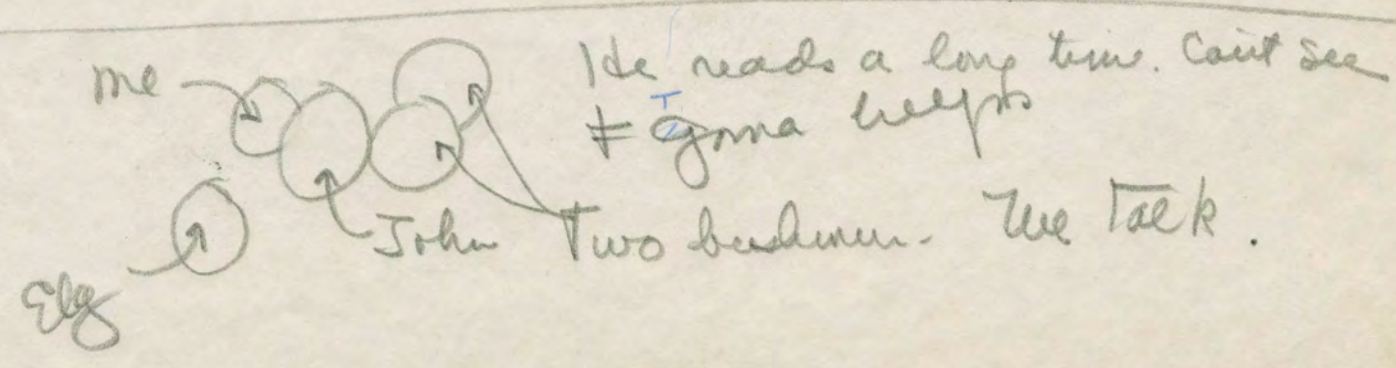 me
He reads a long time. Can't see
T
ǂ goma helps
John Two bushmen. We Talk.